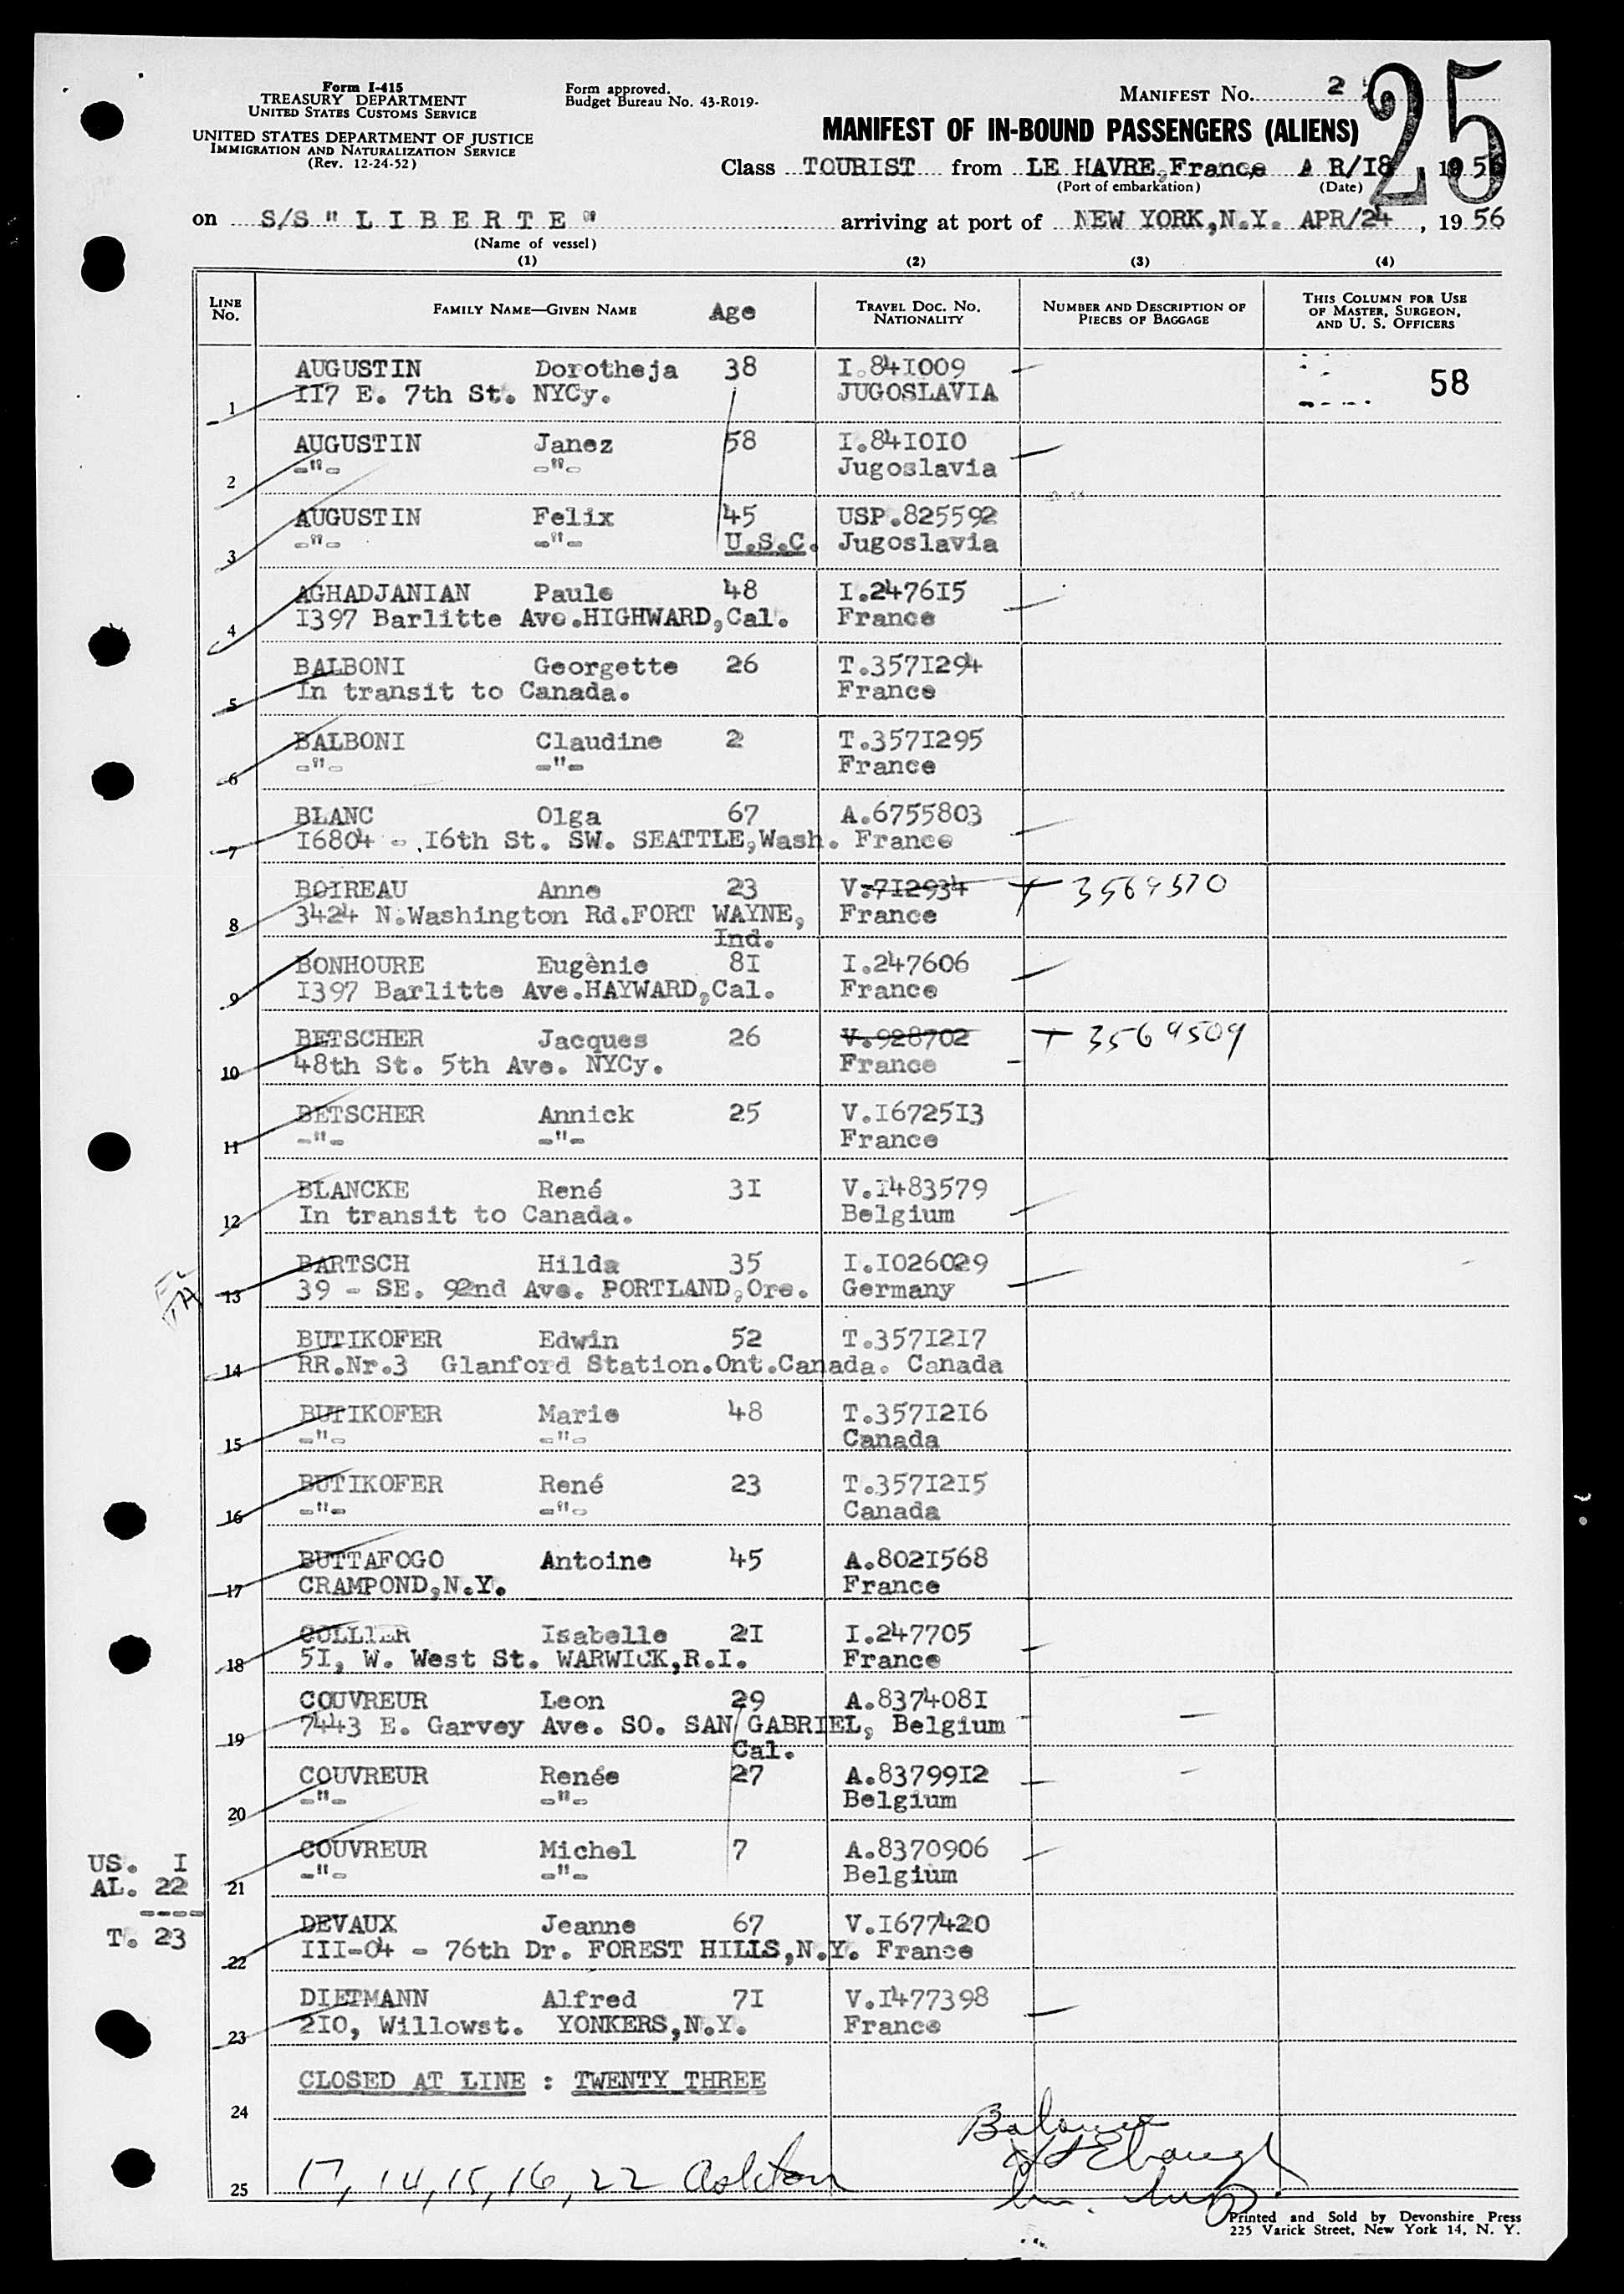 Form I-415
TREASURY DEPARTMENT
UNITED STATES CUSTOMS SERVICE
UNITED STATES DEPARTMENT OF JUSTICE
IMMIGRATION AND NATURALIZATION SERVICE
(Rev. 12-24-52)
Form approved.
Budget Bureau No. 43-R019-
MANIFEST NO. 2
25
MANIFEST OF IN-BOUND PASSENGERS (ALIENS)
Class TOURIST from LE HAVRE,France, A R/I8, 1956
(Port of embarkation) (Date)
on S/S " L I B E R T E " arriving at port of NEW YORK,N.Y. APR/24, 19 56
(Name of vessel)
(1) (2) (3) (4)
LINE No. FAMILY NAME—GIVEN NAME Age TRAVEL DOC. NO. NATIONALITY NUMBER AND DESCRIPTION OF PIECES OF BAGGAGE THIS COLUMN FOR USE OF MASTER, SURGEON, AND U. S. OFFICERS
AUGUSTIN Dorotheja 38 I.84I009 58
1 II7 E. 7th St. NYCy. JUGOSLAVIA
AUGUSTIN Janez 58 I.84I0I0
2 -"- -"- Jugoslavia
AUGUSTIN Felix 45 USP.825592
3 -"- -"- U.S.C. Jugoslavia
AGHADJANIAN Paule 48 I.2476I5
4 I397 Barlitte Ave.HIGHWARD,Cal. France
BALBONI Georgette 26 T.357I294
5 In transit to Canada. France
BALBONI Claudine 2 T.357I295
6 -"- -"- France
BLANC Olga 67 A.6755803
7 I6804 - I6th St. SW. SEATTLE,Wash. France
BOIREAU Anne 23 V.7I2934 T 3569570
8 3424 N.Washington Rd.FORT WAYNE, France
Ind.
BONHOURE Eugènie 8I I.247606
9 I397 Barlitte Ave.HAYWARD,Cal. France
BETSCHER Jacques 26 V.928702 T 3569509
10 48th St. 5th Ave. NYCy. France
BETSCHER Annick 25 V.I6725I3
11 -"- -"- France
BLANCKE René 3I V.I483579
12 In transit to Canada. Belgium
BARTSCH Hilda 35 I.I026029
13 39 - SE. 92nd Ave. PORTLAND,Ore. Germany
BUTIKOFER Edwin 52 T.357I2I7
14 RR.Nr.3 Glanford Station.Ont.Canada. Canada
BUTIKOFER Marie 48 T.357I2I6
15 -"- -"- Canada
BUTIKOFER René 23 T.357I2I5
16 -"- -"- Canada
BUTTAFOGO Antoine 45 A.802I568
17 CRAMPOND,N.Y. France
COLLIER Isabelle 2I I.247705
18 5I, W. West St. WARWICK,R.I. France
COUVREUR Leon 29 A.837408I
19 7443 E. Garvey Ave. SO. SAN GABRIEL, Belgium
Cal.
COUVREUR Renée 27 A.83799I2
20 -"- -"- Belgium
COUVREUR Michel 7 A.8370906
21 -"- -"- Belgium
US. I
AL. 22
----
T. 23
DEVAUX Jeanne 67 V.I677420
22 III-04 - 76th Dr. FOREST HILLS,N.Y. France
DIETMANN Alfred 7I V.I477398
23 2I0, Willowst. YONKERS,N.Y. France
CLOSED AT LINE : TWENTY THREE
24
Balance
25 17, 14, 15, 16, 22 Ashton
Printed and Sold by Devonshire Press
225 Varick Street, New York 14, N. Y.